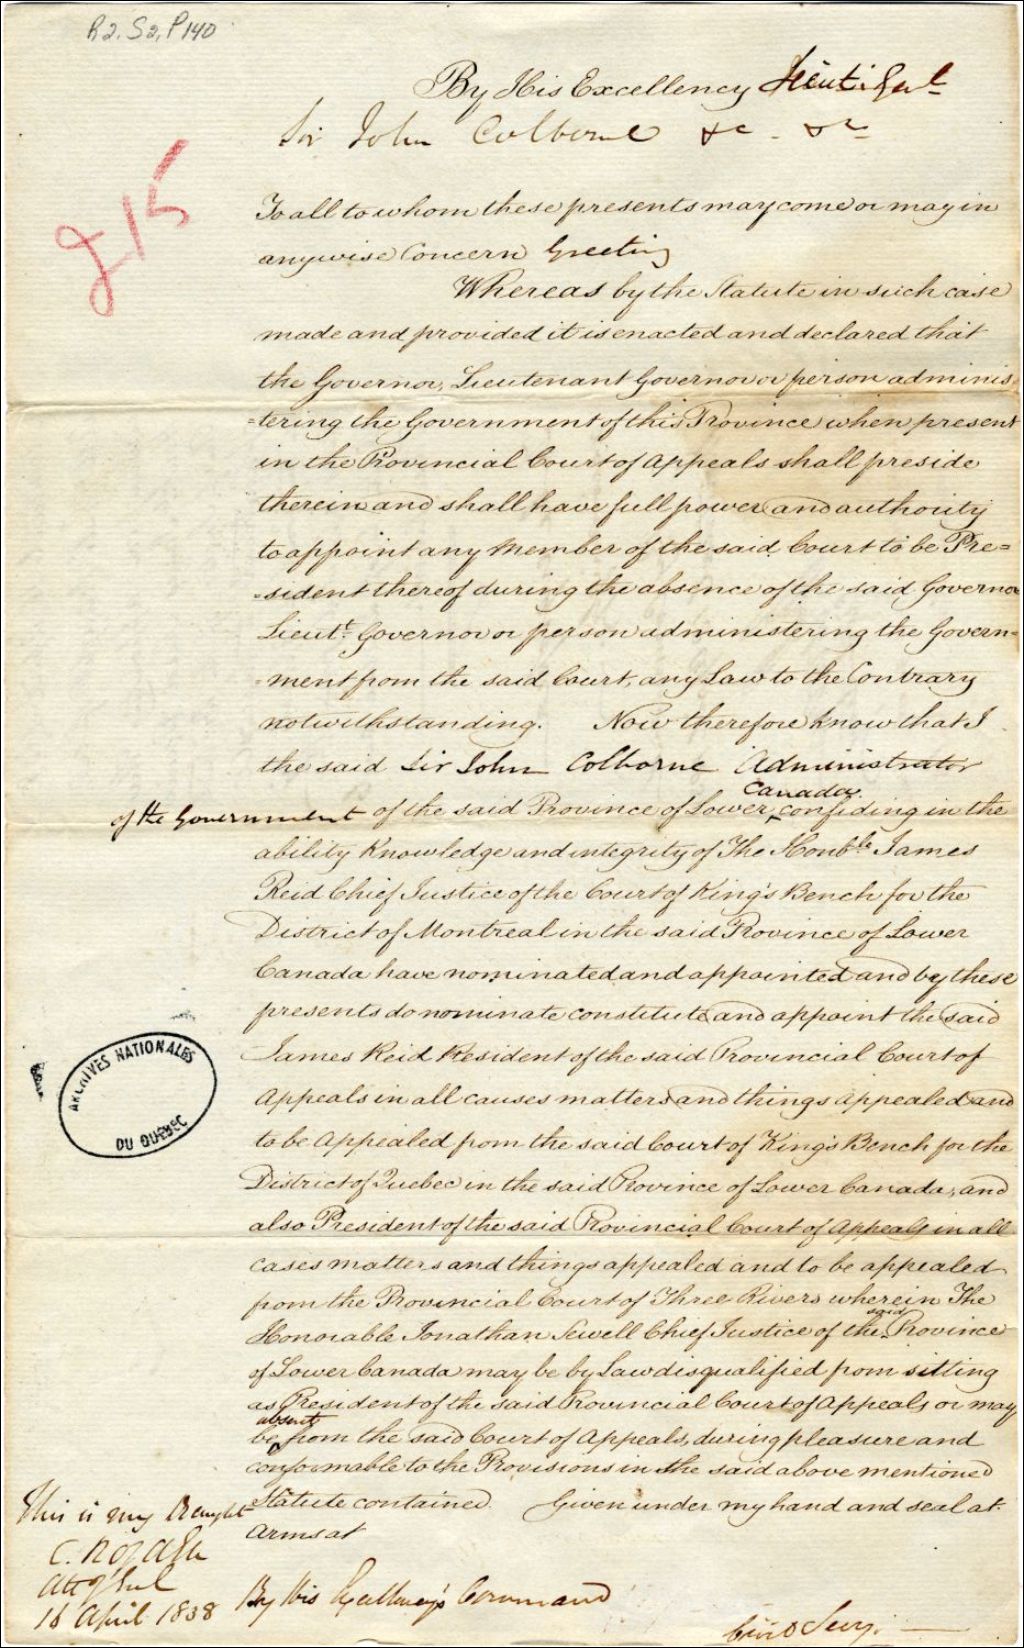 R2. S2, P140
By His Excellency Lieut. Genl
Sir John Colborne &c - &c
£15
To all to whom these presents may come or may in
anywise Concern Greeting
Whereas by the Statute in such case
made and provided it is enacted and declared that
the Governor, Lieutenant Governor or person adminis-
=tering the Government of this Province when present
in the Provincial Court of Appeals shall preside
therein and shall have full power and authority
to appoint any Member of the said Court to be Pre=
=sident thereof during the absence of the said Governor
Lieutt. Governor or person administering the Govern=
=ment from the said Court, any Law to the Contrary
notwithstanding. Now therefore know that I
the said Sir John Colborne Administrator
Canada
of the Government of the said Province of Lower ‸ confiding in the
ability Knowledge and integrity of The Honble James
Reid Chief Justice of the Court of King's Bench for the
District of Montreal in the said Province of Lower
Canada have nominated and appointed and by these
presents do nominate constitute and appoint the said
James Reid President of the said Provincial Court of
Appeals in all causes matters and things appealed and
to be Appealed from the said Court of King's Bench for the
District of Quebec in the said Province of Lower Canada, and
also President of the said Provincial Court of Appeals in all
cases matters and things appealed and to be appealed
from the Provincial Court of Three Rivers wherein The
said
Honorable Jonathan Sewell Chief Justice of the ‸ Province
of Lower Canada may be by Law disqualified from sitting
as President of the said Provincial Court of Appeals or may
absent
be ‸ from the said Court of Appeals, during pleasure and
conformable to the Provisions in the said above mentioned
Statute contained. Given under my hand and seal at
Arms at
ARCHIVES NATIONALES
DU QUÉBEC
This is my Draught
C. R Ogden
Atty Genl
16 April 1838
By His Excellency's Command
Civil Secy.